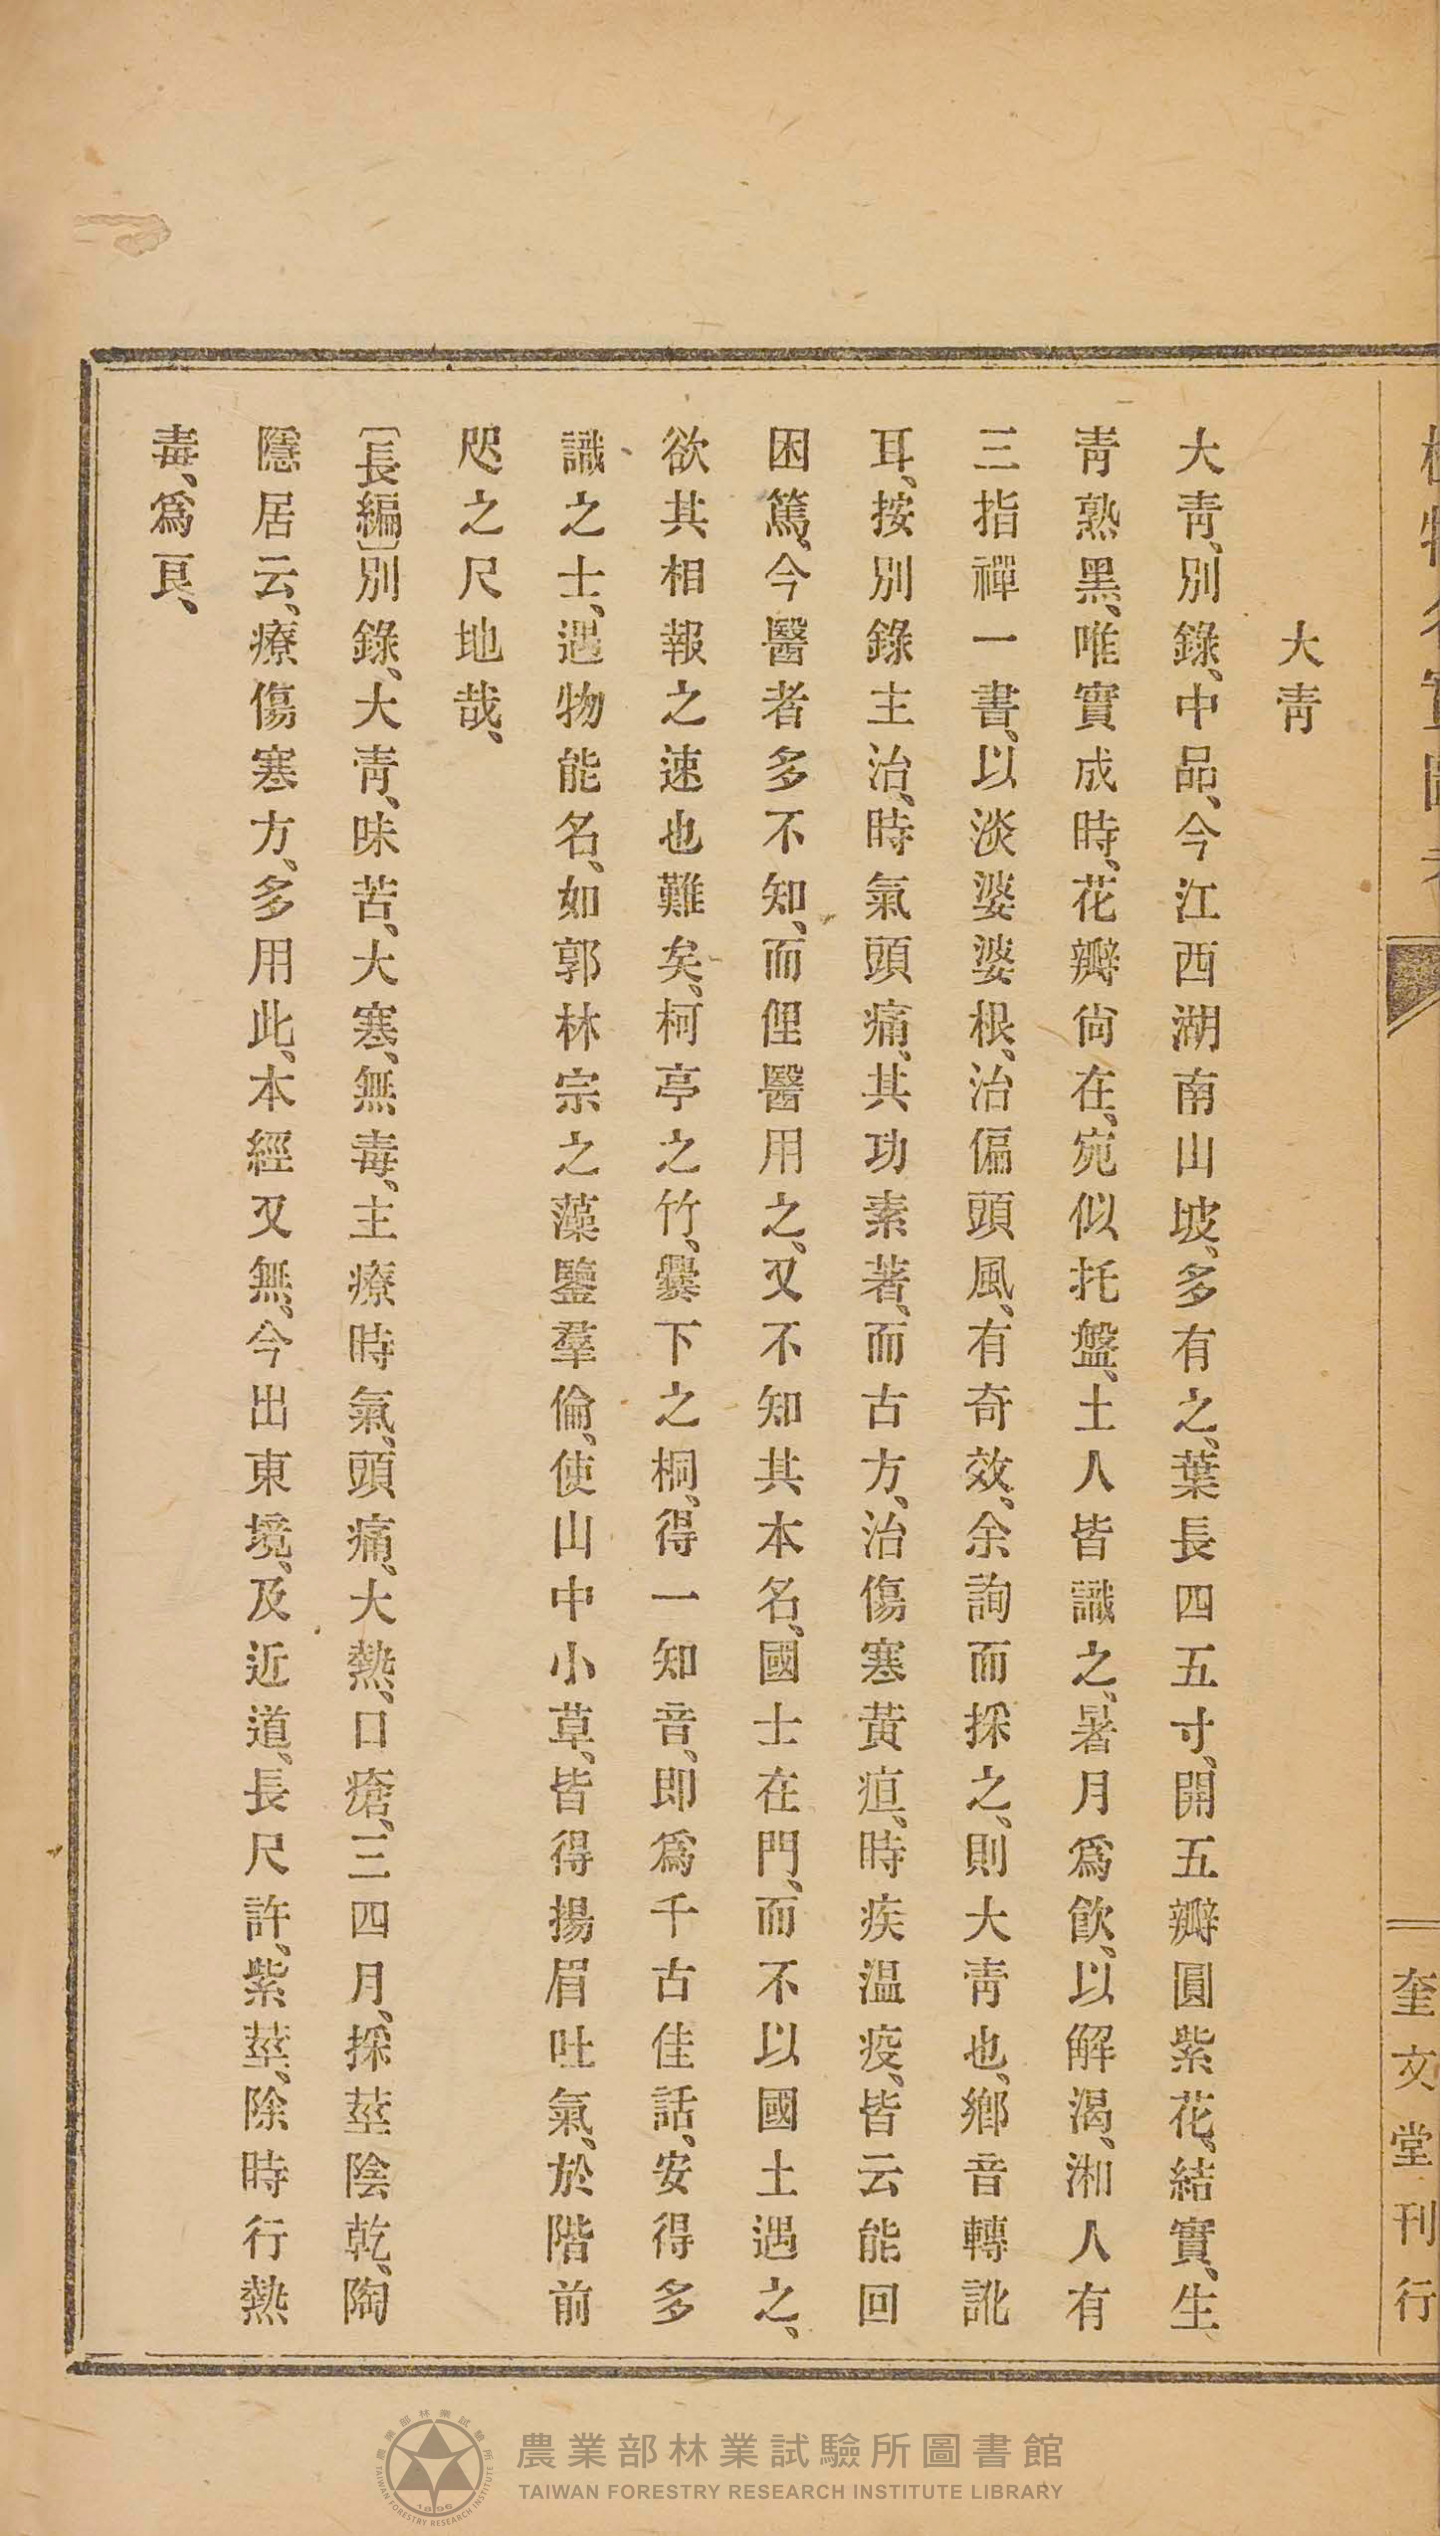 植物名實圖考
奎文堂刊行
大靑
大靑、別錄、中品、今江西湖南山坡、多有之、葉長四五寸、開五瓣圓紫花、結實、生
靑熟黑、唯實成時、花瓣尙在、宛似托盤、土人皆識之、暑月爲飮、以解渴、湘人有
三指禪一書、以淡婆婆根、治偏頭風、有奇效、余詢而採之、則大靑也、鄉音轉訛
耳、按別錄主治、時氣頭痛、其功素著、而古方、治傷寒黃疸、時疾温疫、皆云能回
困篤、今醫者多不知、而俚醫用之、又不知其本名、國士在門、而不以國士遇之、
欲其相報之速也難矣、柯亭之竹、爨下之桐、得一知音、即爲千古佳話、安得多
識之士、遇物能名、如郭林宗之藻鑒羣倫、使山中小草、皆得揚眉吐氣、於階前
咫之尺地哉、
〔長編〕別錄、大靑、味苦、大寒、無毒、主療時氣、頭痛、大熱、口瘡、三四月、採莖陰乾、陶
隱居云、療傷寒方、多用此、本經又無、今出東境、及近道、長尺許、紫莖、除時行熱
毒、爲良、
農業部林業試驗所圖書館
TAIWAN FORESTRY RESEARCH INSTITUTE LIBRARY
農業部林業試驗所
TAIWAN FORESTRY RESEARCH INSTITUTE
1896